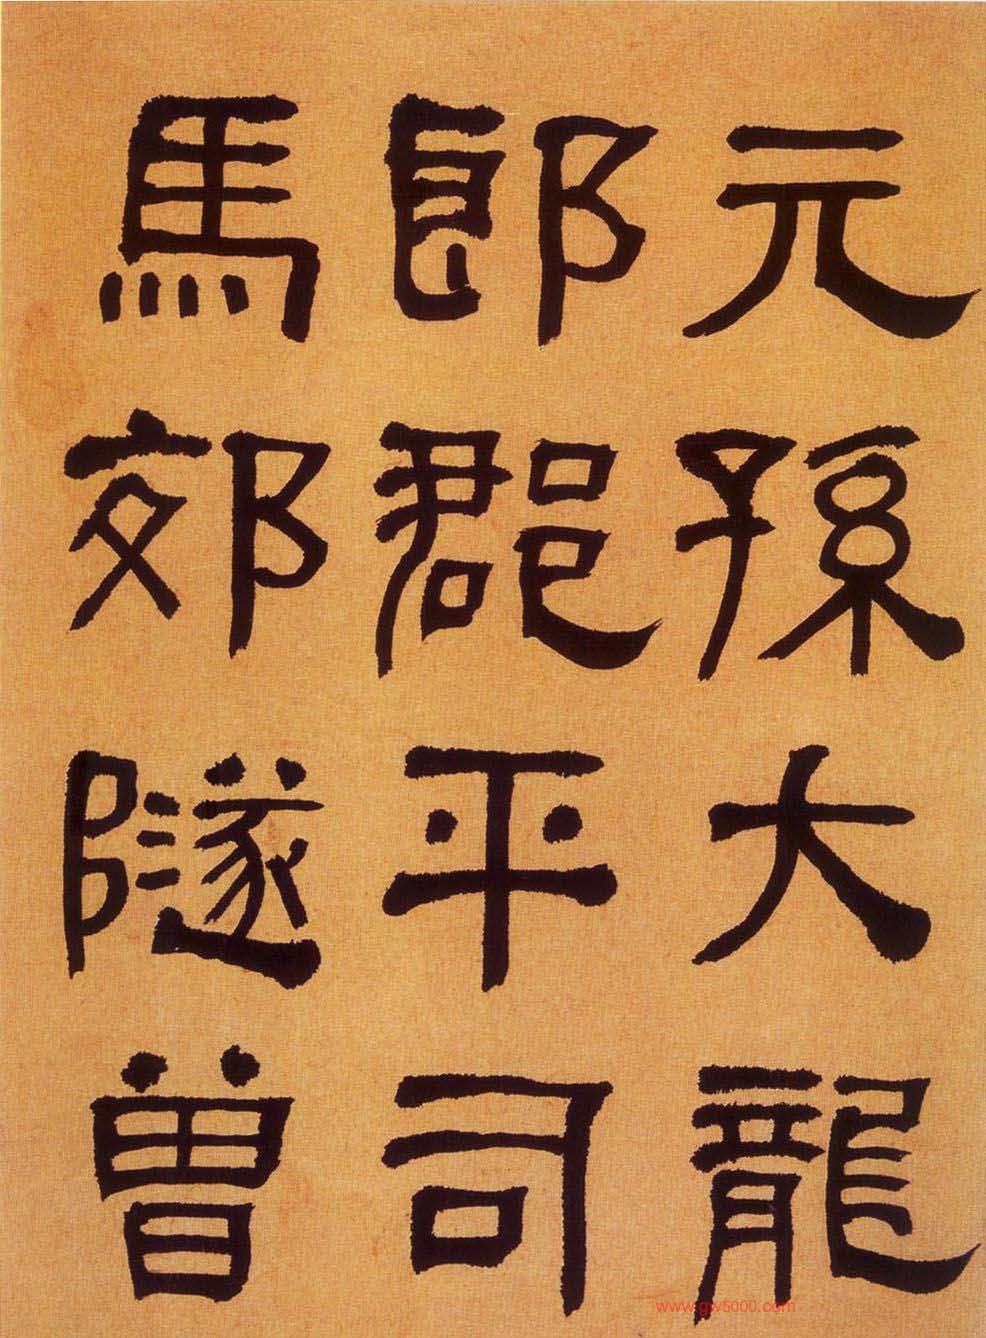 元孫大龍
郎郡平司
馬郊隧曾
www.gw5000.com